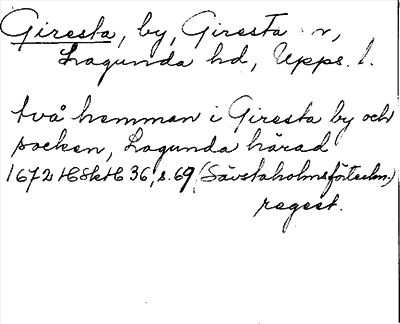 Giresta, by, Giresta
Lagunda hd, Upps. l.
två hemman i Giresta by och
socken, Lagunda härad
1672 HSkH 36, s. 69 (Sävstaholmsförteckn.)
regest.